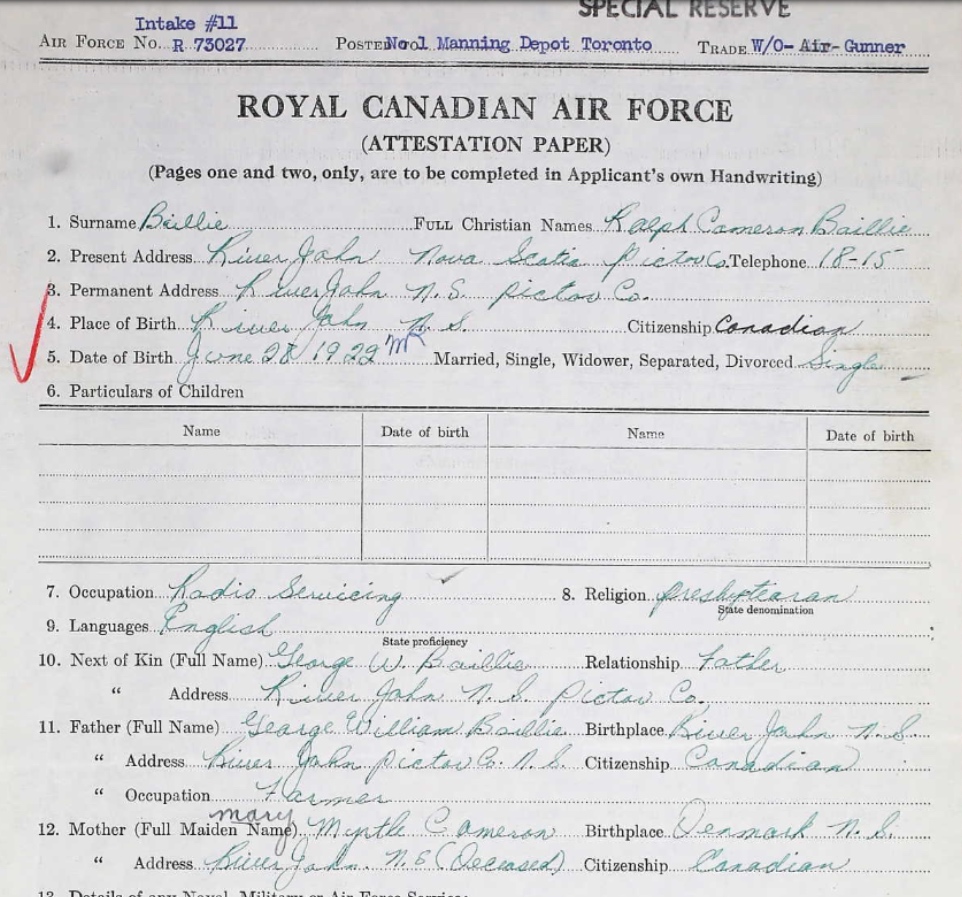 SPECIAL RESERVE
Intake #11
AIR FORCE No. R 73027 POSTED No 1 Manning Depot Toronto TRADE W/O- Air- Gunner
ROYAL CANADIAN AIR FORCE
(ATTESTATION PAPER)
(Pages one and two, only, are to be completed in Applicant's own Handwriting)
1. Surname Baillie FULL Christian Names Ralph Cameron Baillie
2. Present Address River John Nova Scotia Pictou Co. Telephone 18-15
3. Permanent Address River John N.S. Pictou Co.
4. Place of Birth River John N.S. Citizenship Canadian
5. Date of Birth June 28/1922 Married, Single, Widower, Separated, Divorced Single
6. Particulars of Children
Name Date of birth Name Date of birth
7. Occupation Radio Servicing 8. Religion Presbytearan
State denomination
9. Languages English
State proficiency
10. Next of Kin (Full Name) George W. Baillie Relationship Father
" Address River John N.S. Pictou Co.
11. Father (Full Name) George William Baillie Birthplace River John N.S.
" Address River John Pictou Co. N.S. Citizenship Canadian
" Occupation Farmer
mary
12. Mother (Full Maiden Name) Myrtle Cameron Birthplace Denmark N.S.
" Address River John N.S (Deceased) Citizenship Canadian
13. Details of any Naval, Military or Air Force Service: